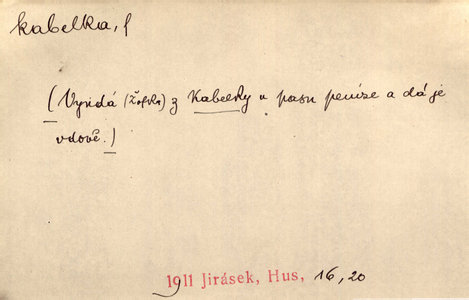 kabelka, f
(Vyndá (Žofka) z kabelky u pasu peníze a dá je
vdově.)
1911 Jirásek, Hus, 16, 20